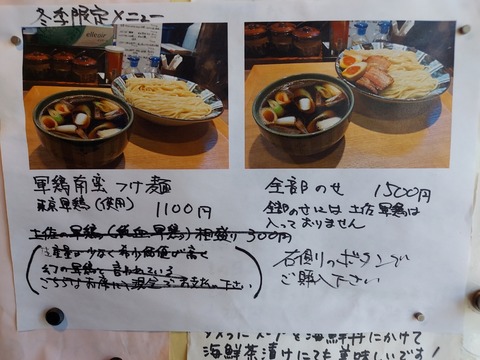 冬季限定メニュー
軍鶏南蛮つけ麺
東京軍鶏(使用) 1100円
土佐の軍鶏 相盛り 300円
生産量が少なく希少価値が高く
幻の軍鶏と言われている
こちらはお席にて現金でお支払い下さい
全部のせ 1500円
全部のせには土佐軍鶏は
入っておりません
右側のボタンで
ご購入下さい
海鮮丼にかけて
海鮮茶漬けにしても美味しいです!